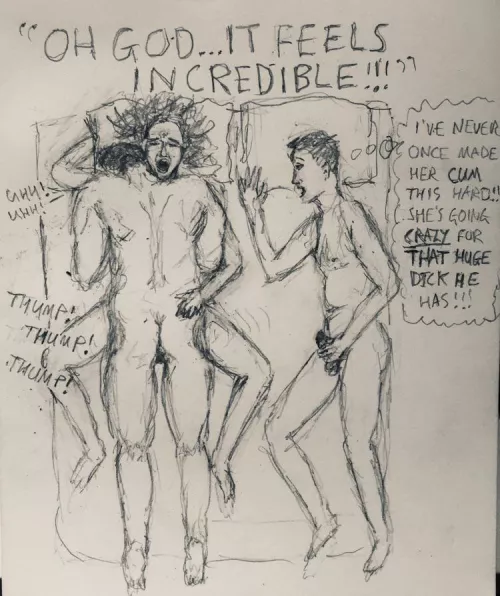 "OH GOD...IT FEELS
INCREDIBLE!!!"
I'VE NEVER
ONCE MADE
HER CUM
THIS HARD!!
SHE'S GOING
CRAZY FOR
THAT HUGE
DICK HE
HAS!!!
UHH!
UHH!
THUMP!
THUMP!
THUMP!